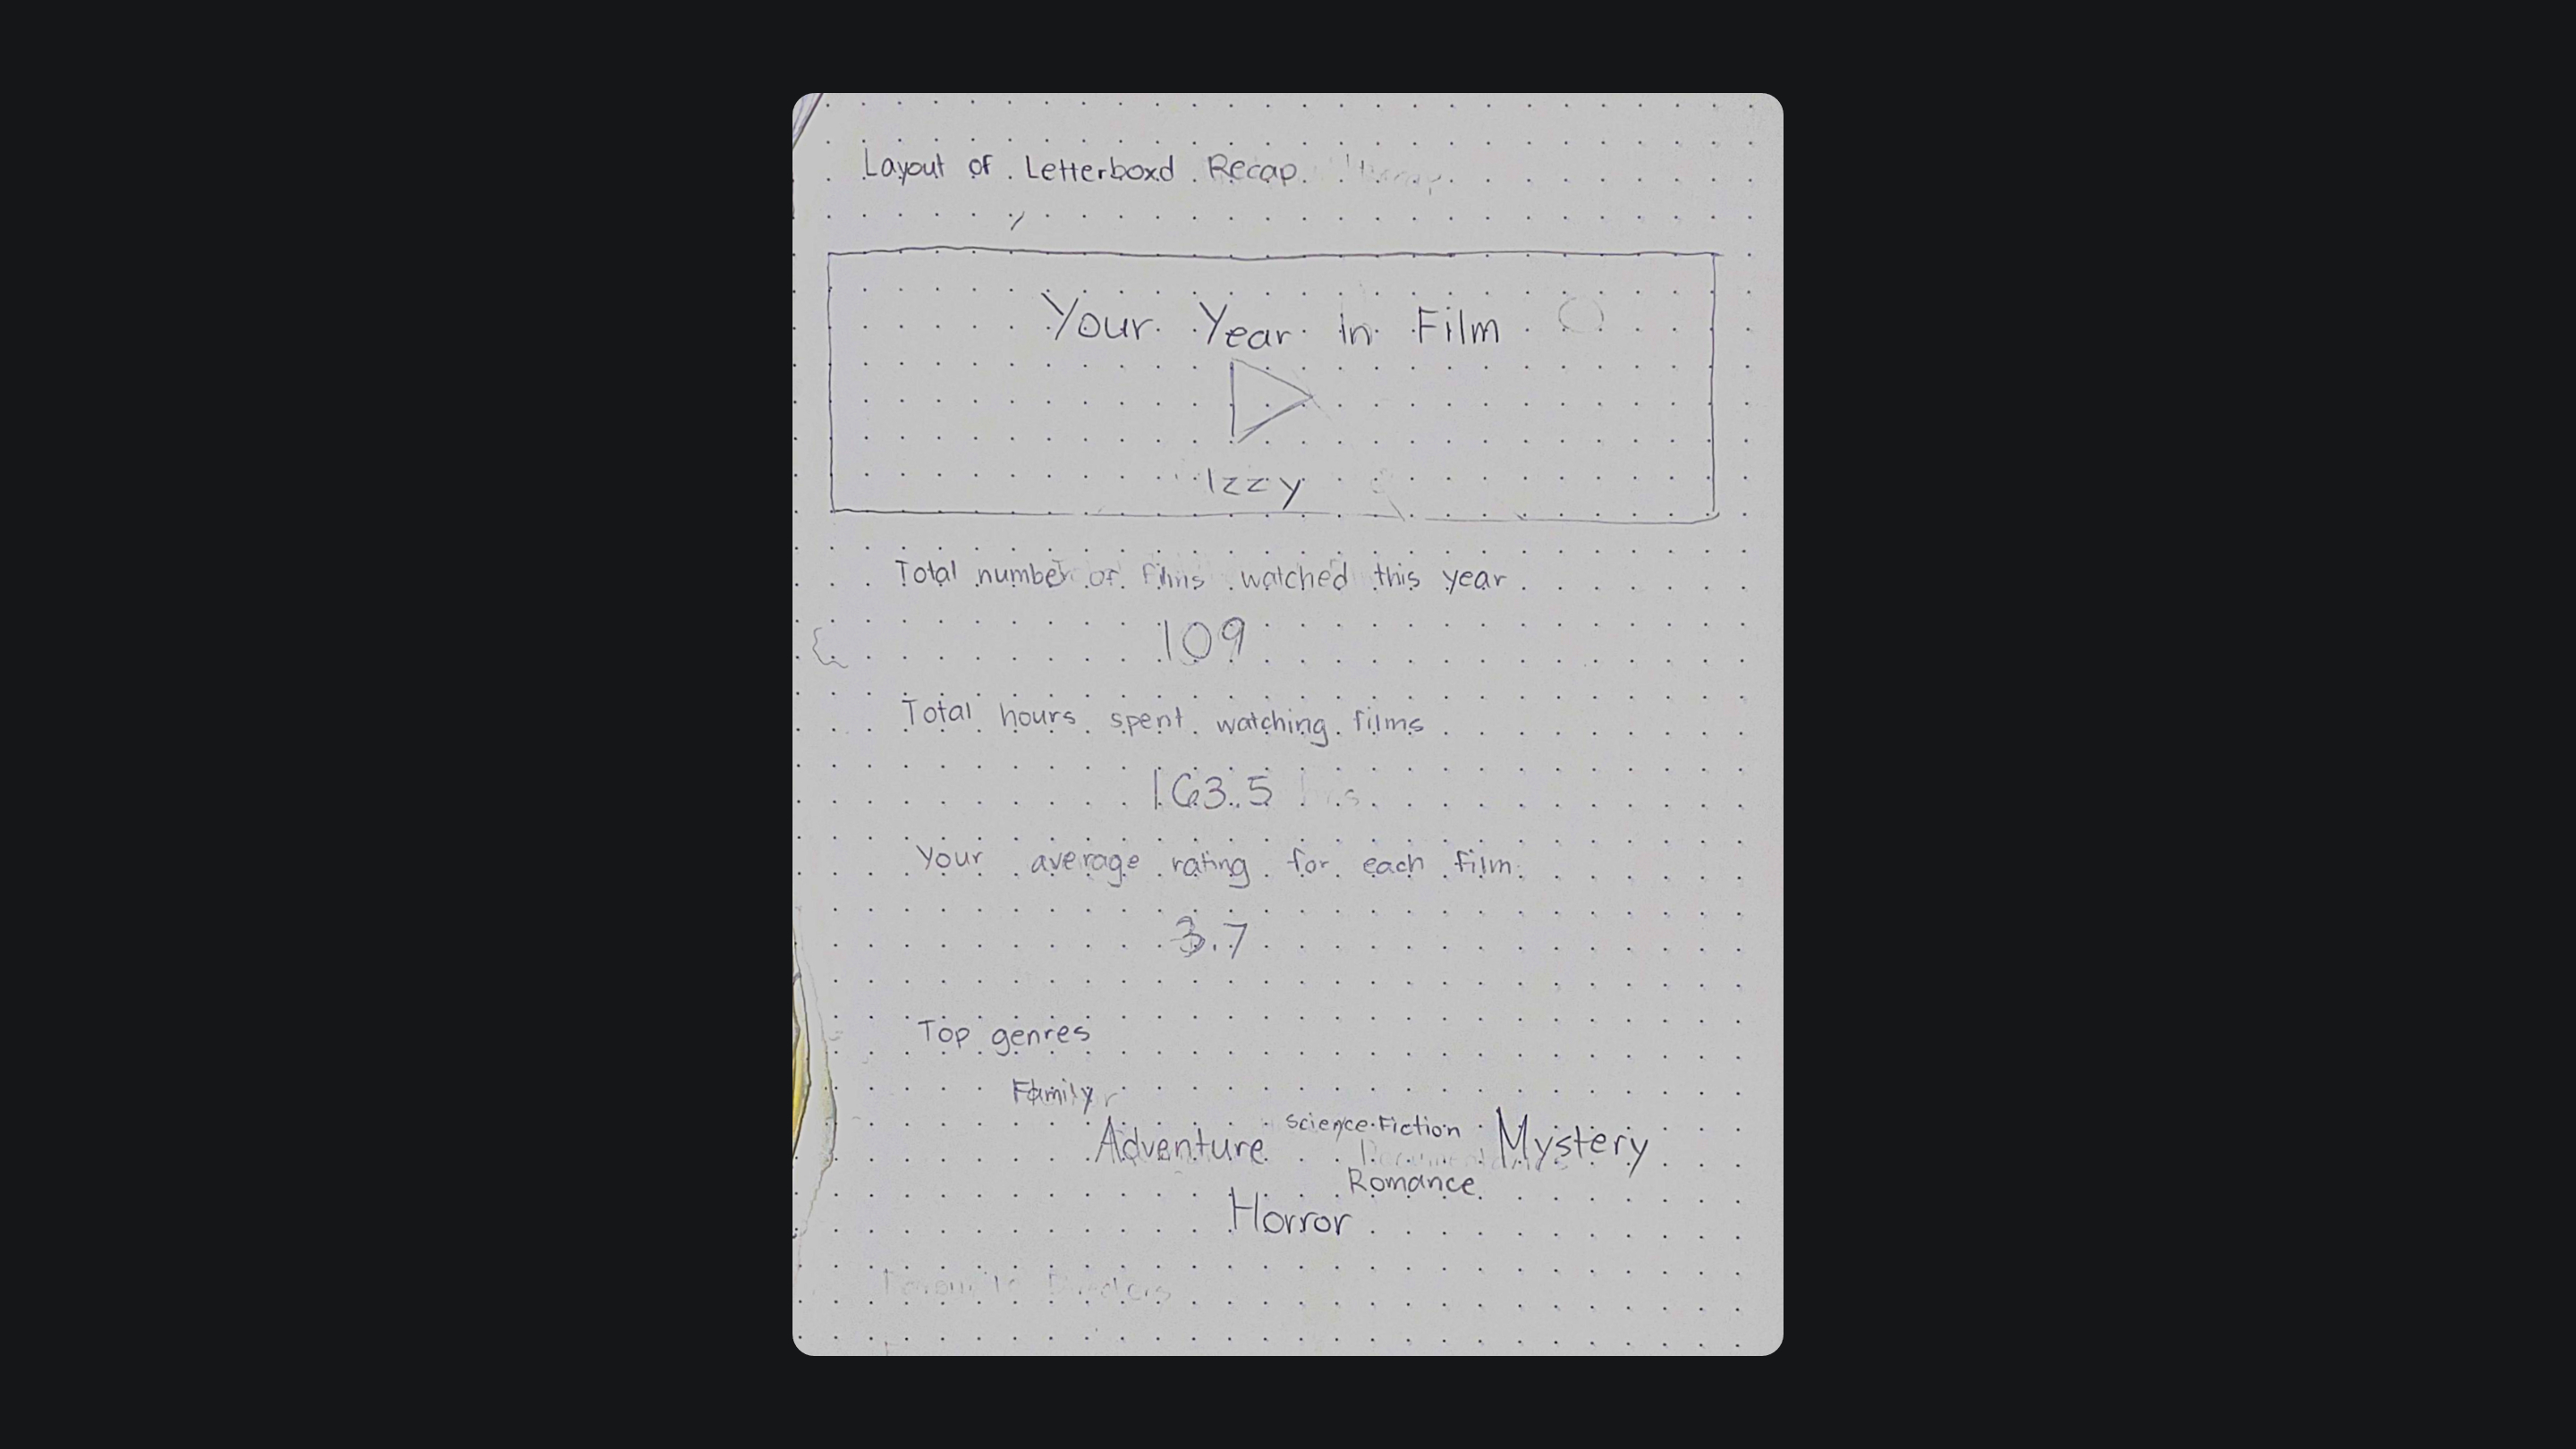 Layout of Letterboxd Recap
Your Year in Film
Izzy
Total number of films watched this year
109
Total hours spent watching films
163.5
Your average rating for each film
3.7
Top genres
Family
Adventure
Science-Fiction
Mystery
Romance
Horror